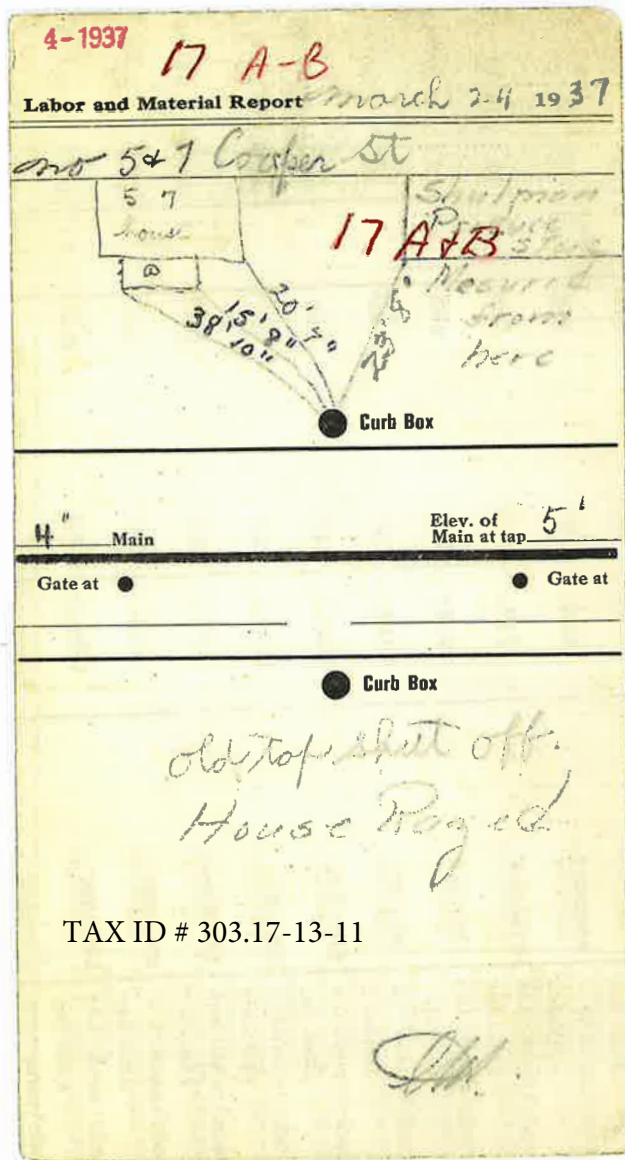 4-1937
17 A-B
Labor and Material Report March 24 1937
no 5 & 7 Cooper St
5 7
house
Shulman
Produce
Store
17 A&B
Mesured
from
here
20' 7"
15' 8"
38' 10"
Curb Box
4" Main
Elev. of
Main at tap 5'
Gate at
Gate at
Curb Box
old tap shut off.
House Razed
TAX ID # 303.17-13-11